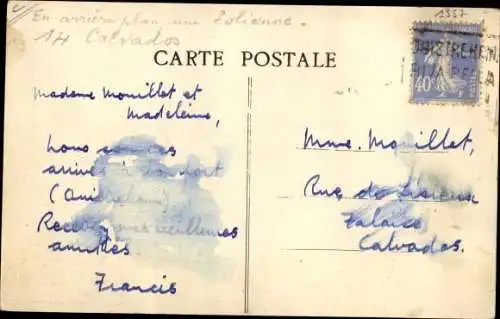 En arrière plan une Eolienne.
14 Calvados
1337
CARTE POSTALE
OUISTREHAM
RIVA BELLA
40
Madame Mouillet et
Madeleine,
nous sommes
arrivés à bon port
(Ouistreham)
Recevez mes meilleures
amitiés
Francis
Mme. Mouillet,
Rue de Lisieux
Falaise
Calvados.